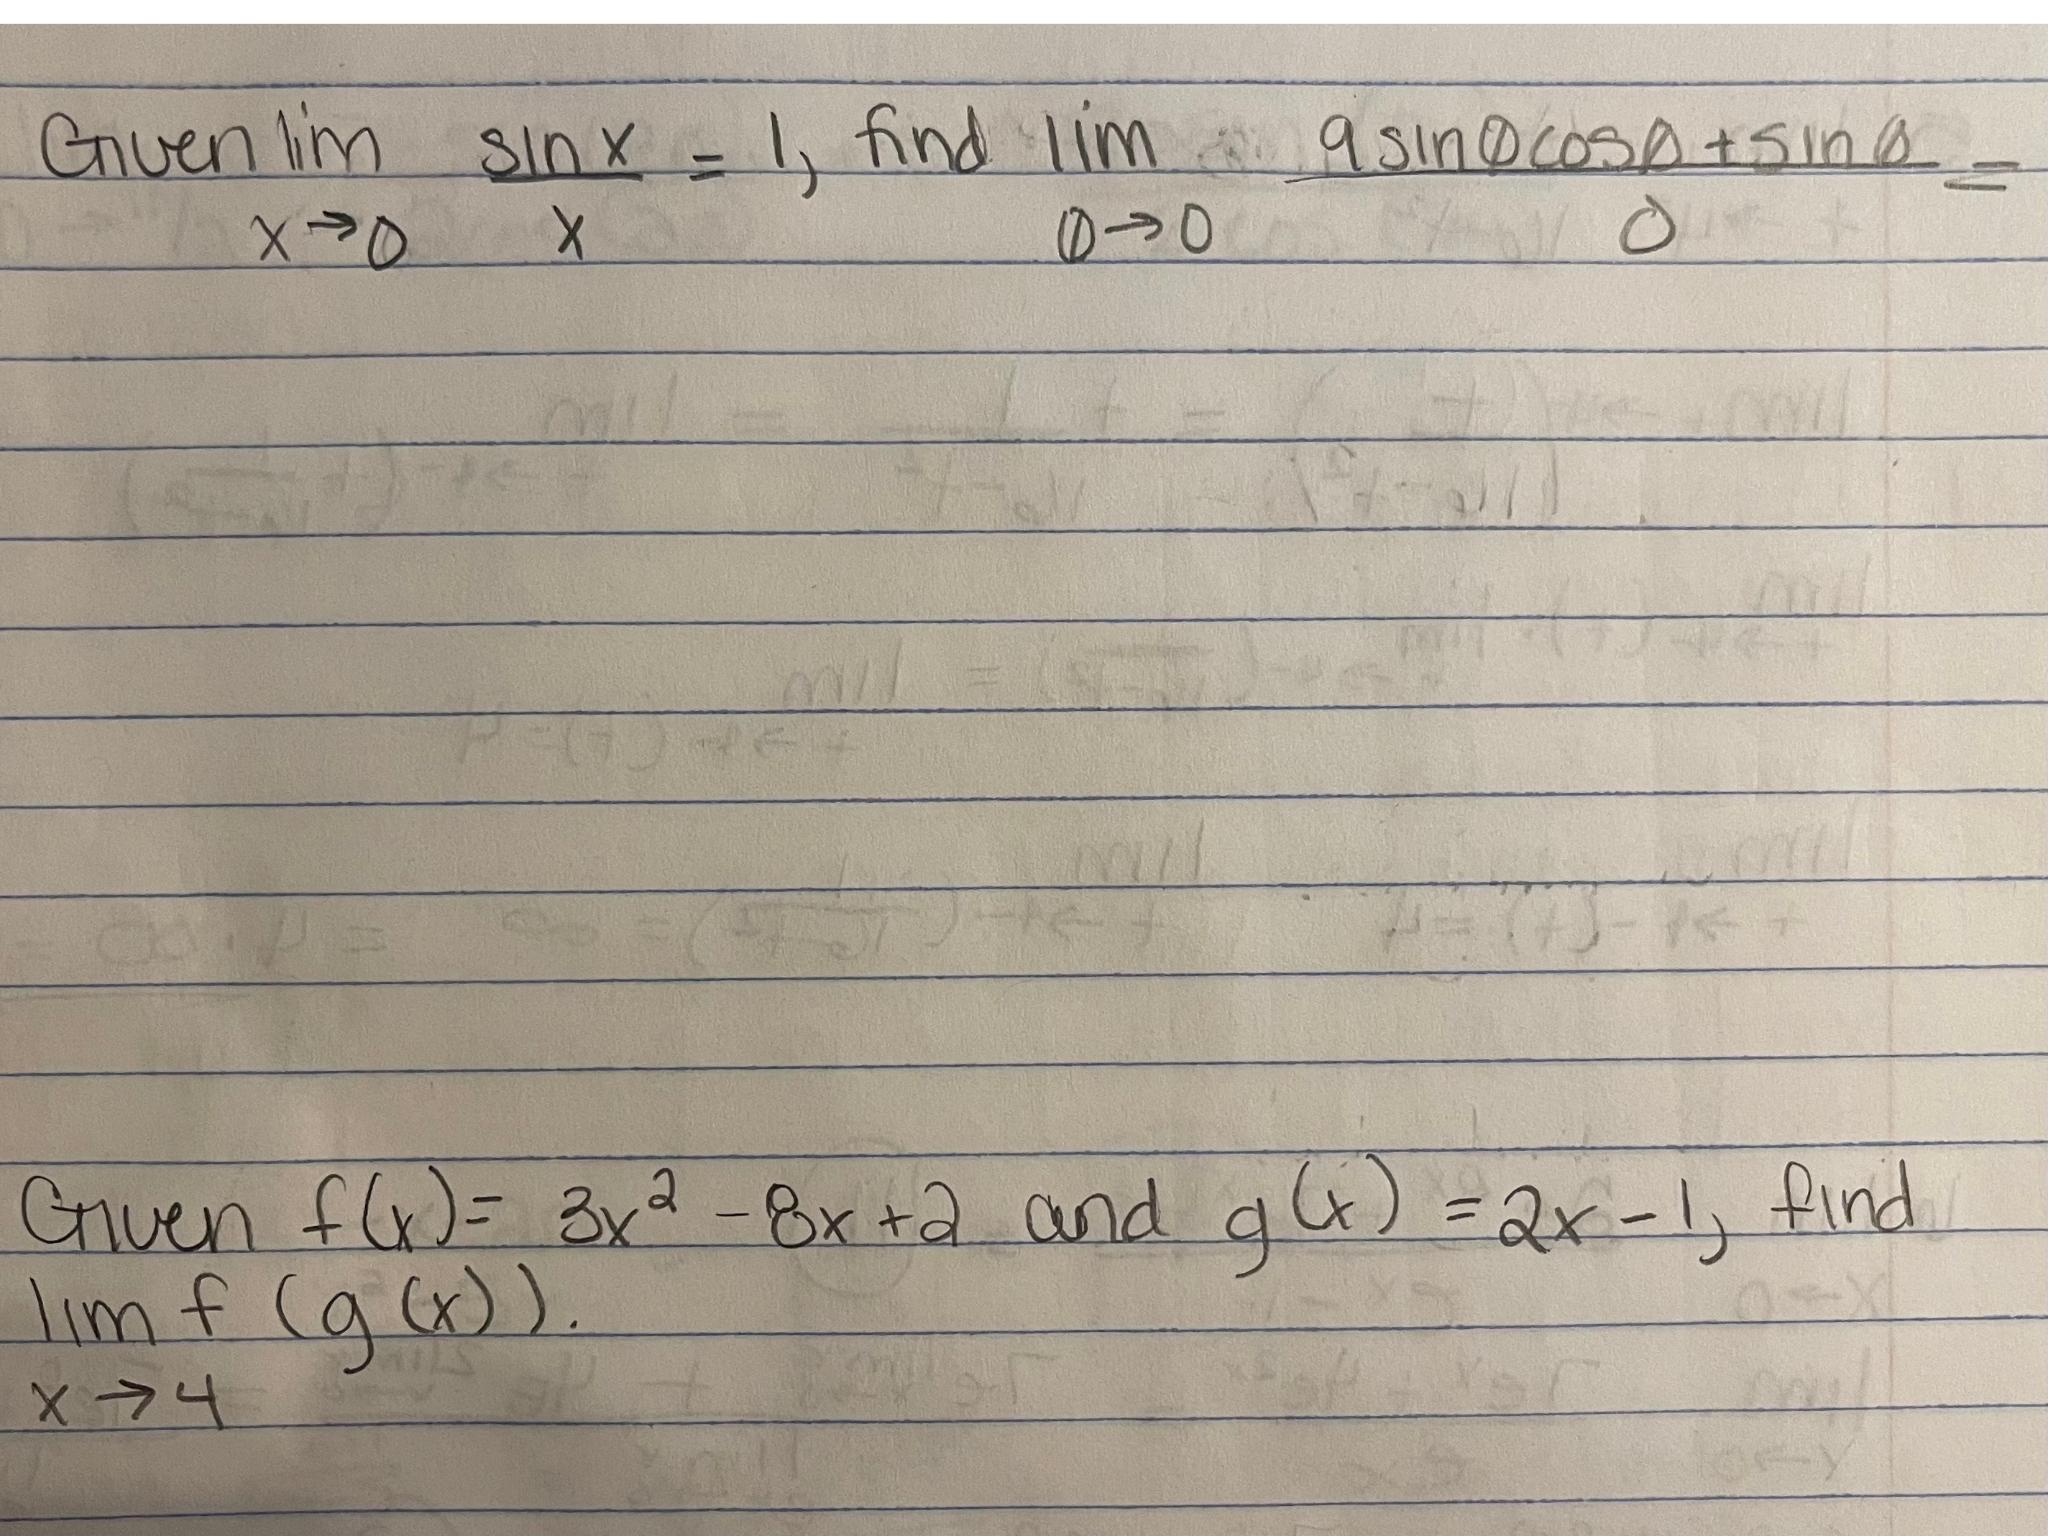 Given lim sin x / x = 1, find lim 9 sinθcosθ + sinθ / θ =
x→0 θ→0
Given f(x) = 3x² - 8x + 2 and g(x) = 2x - 1, find
lim f (g(x)).
x → 4